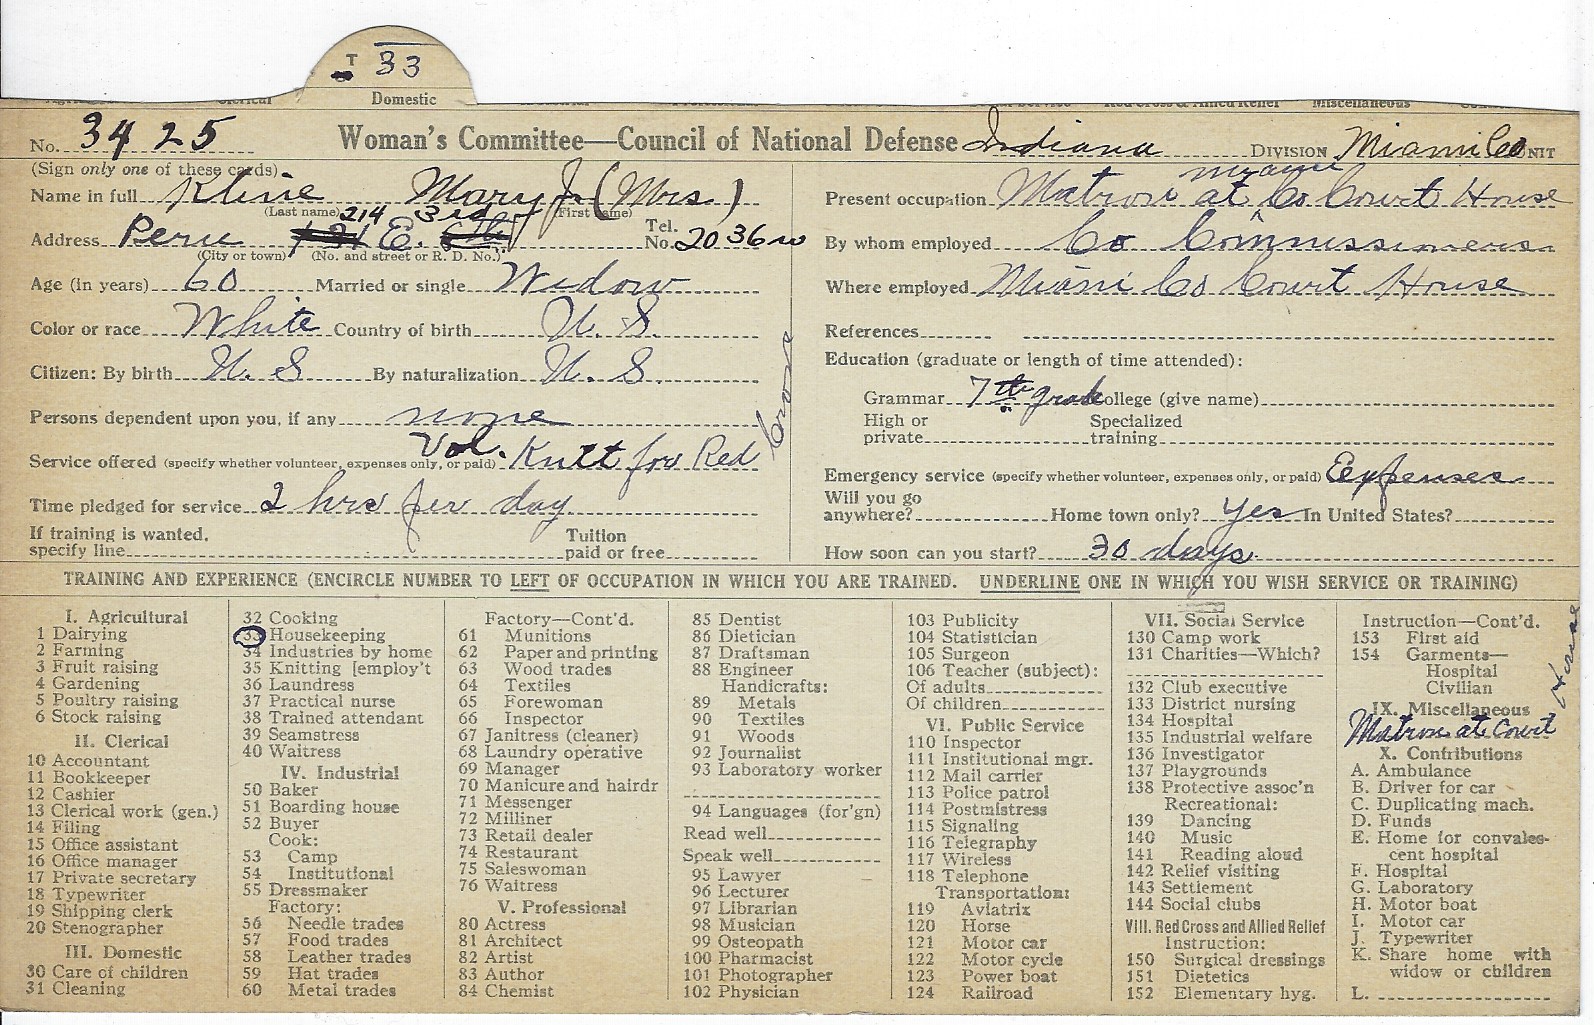 T 33
Domestic
No. 3425 Woman's Committee—Council of National Defense Indiana DIVISION Miami Co UNIT
(Sign only one of these cards)
Name in full Kline Mary J. (Mrs.)
(Last name) (First name)
214 3rd
Address Peru E. Tel. No. 2036w
(City or town) (No. and street or R. D. No.)
Age (in years) 60 Married or single Widow
Color or race White Country of birth U. S.
Citizen: By birth U. S By naturalization U. S.
Persons dependent upon you, if any none
Service offered (specify whether volunteer, expenses only, or paid) Vol. Knitt for Red Cross
Time pledged for service 2 hrs per day
If training is wanted, specify line Tuition paid or free
Miami
Present occupation Matron at Co Court House
By whom employed Co Commissioners
Where employed Miami Co Court House
References
Education (graduate or length of time attended):
Grammar 7th grade College (give name)
High or private Specialized training
Emergency service (specify whether volunteer, expenses only, or paid) Expenses
Will you go anywhere? Home town only? Yes In United States?
How soon can you start? 30 days
TRAINING AND EXPERIENCE (ENCIRCLE NUMBER TO LEFT OF OCCUPATION IN WHICH YOU ARE TRAINED. UNDERLINE ONE IN WHICH YOU WISH SERVICE OR TRAINING)
I. Agricultural
1 Dairying
2 Farming
3 Fruit raising
4 Gardening
5 Poultry raising
6 Stock raising
II. Clerical
10 Accountant
11 Bookkeeper
12 Cashier
13 Clerical work (gen.)
14 Filing
15 Office assistant
16 Office manager
17 Private secretary
18 Typewriter
19 Shipping clerk
20 Stenographer
III. Domestic
30 Care of children
31 Cleaning
32 Cooking
33 Housekeeping
34 Industries by home
35 Knitting [employ't
36 Laundress
37 Practical nurse
38 Trained attendant
39 Seamstress
40 Waitress
IV. Industrial
50 Baker
51 Boarding house
52 Buyer
Cook:
53 Camp
54 Institutional
55 Dressmaker
Factory:
56 Needle trades
57 Food trades
58 Leather trades
59 Hat trades
60 Metal trades
Factory—Cont'd.
61 Munitions
62 Paper and printing
63 Wood trades
64 Textiles
65 Forewoman
66 Inspector
67 Janitress (cleaner)
68 Laundry operative
69 Manager
70 Manicure and hairdr
71 Messenger
72 Milliner
73 Retail dealer
74 Restaurant
75 Saleswoman
76 Waitress
V. Professional
80 Actress
81 Architect
82 Artist
83 Author
84 Chemist
85 Dentist
86 Dietician
87 Draftsman
88 Engineer
Handicrafts:
89 Metals
90 Textiles
91 Woods
92 Journalist
93 Laboratory worker
94 Languages (for'gn)
Read well
Speak well
95 Lawyer
96 Lecturer
97 Librarian
98 Musician
99 Osteopath
100 Pharmacist
101 Photographer
102 Physician
103 Publicity
104 Statistician
105 Surgeon
106 Teacher (subject):
Of adults
Of children
VI. Public Service
110 Inspector
111 Institutional mgr.
112 Mail carrier
113 Police patrol
114 Postmistress
115 Signaling
116 Telegraphy
117 Wireless
118 Telephone
Transportation:
119 Aviatrix
120 Horse
121 Motor car
122 Motor cycle
123 Power boat
124 Railroad
VII. Social Service
130 Camp work
131 Charities—Which?
132 Club executive
133 District nursing
134 Hospital
135 Industrial welfare
136 Investigator
137 Playgrounds
138 Protective assoc'n
Recreational:
139 Dancing
140 Music
141 Reading aloud
142 Relief visiting
143 Settlement
144 Social clubs
VIII. Red Cross and Allied Relief
Instruction:
150 Surgical dressings
151 Dietetics
152 Elementary hyg.
Instruction—Cont'd.
153 First aid
154 Garments—
Hospital
Civilian
IX. Miscellaneous
Matron at Court House
X. Contributions
A. Ambulance
B. Driver for car
C. Duplicating mach.
D. Funds
E. Home for convales-
cent hospital
F. Hospital
G. Laboratory
H. Motor boat
I. Motor car
J. Typewriter
K. Share home with
widow or children
L.